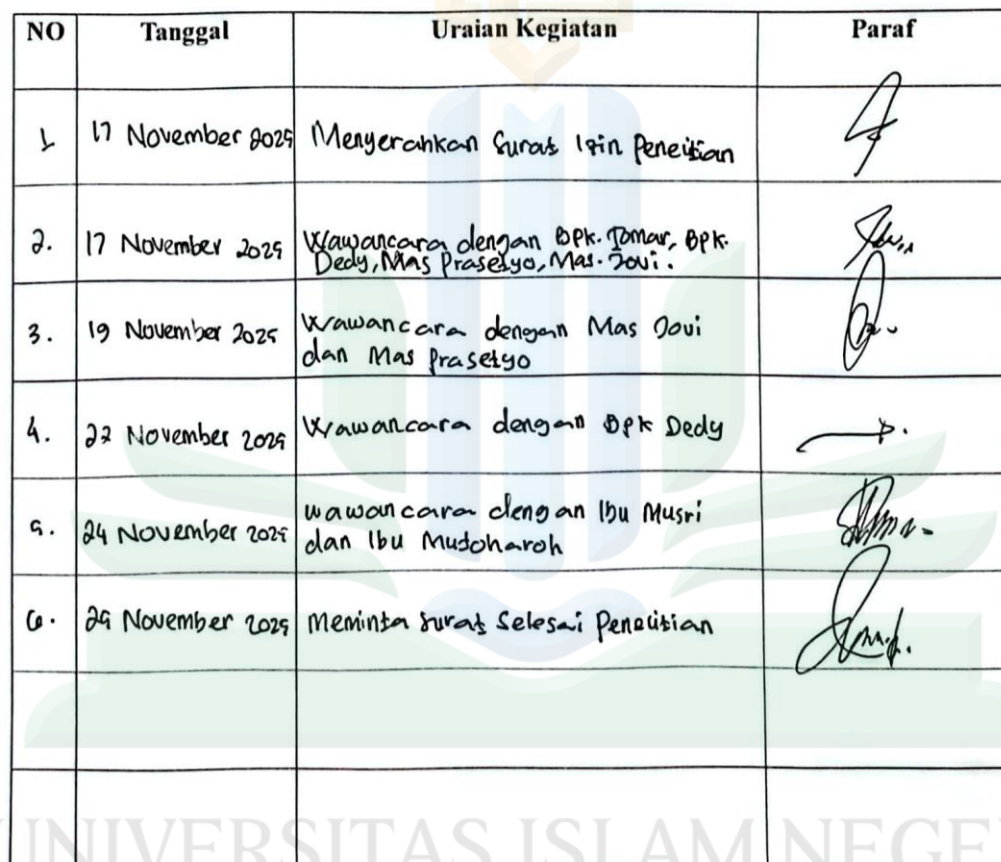 NO Tanggal Uraian Kegiatan Paraf
1 17 November 2025 Menyerahkan Surat Izin Peneitian
2. 17 November 2025 Wawancara dengan BPK. Tomar, BPK.
Dedy, Mas Prasetyo, Mas. Jovi.
3. 19 November 2025 Wawancara dengan Mas Jovi
dan Mas Prasetyo
4. 22 November 2025 Wawancara dengan Bpk Dedy
5. 24 November 2025 wawancara dengan Ibu Musri
dan Ibu Mutoharoh
6. 25 November 2025 Meminta surat Selesai Peneuitian
UNIVERSITAS ISLAM NEGE